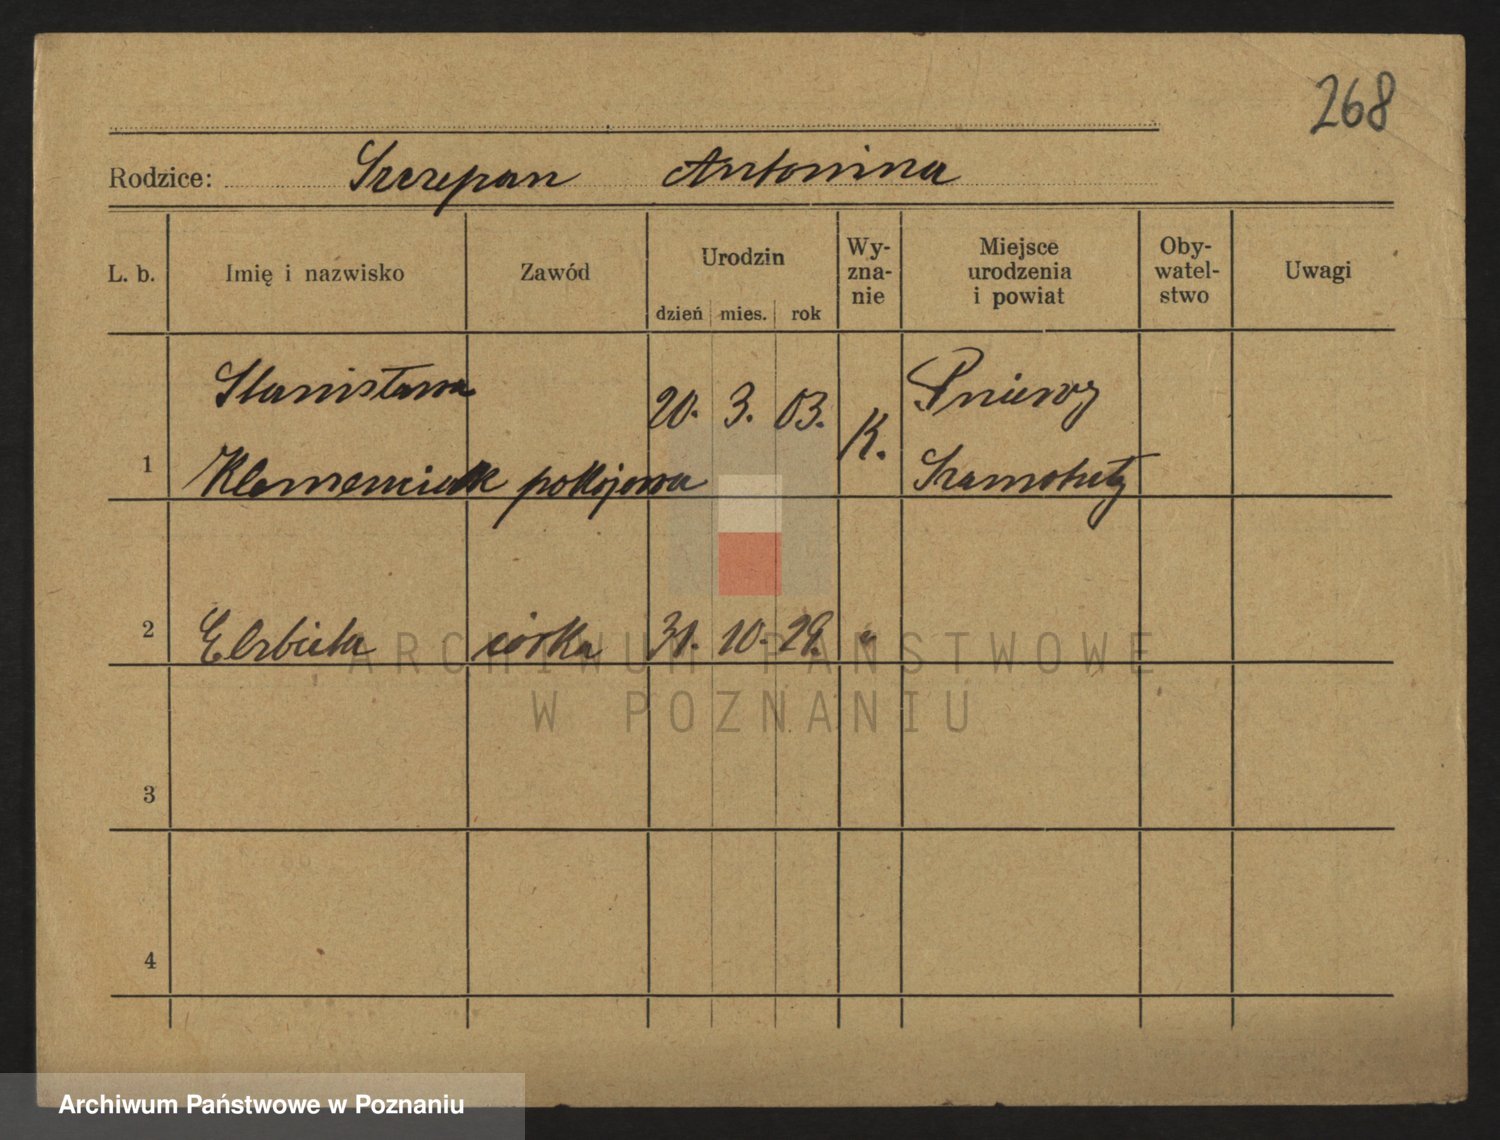 268
Rodzice: Szczepan Antonina
L. b. Imię i nazwisko Zawód Urodzin dzień mies. rok Wy-zna-nie Miejsce urodzenia i powiat Oby-watel-stwo Uwagi
Stanisława 20. 3. 03. K. Pniewy
1 pokojowa Szamotuły
2 Elżbieta córka 31. 10. 29. "
ARCHIWUM PAŃSTWOWE
W POZNANIU
3
4
Archiwum Państwowe w Poznaniu